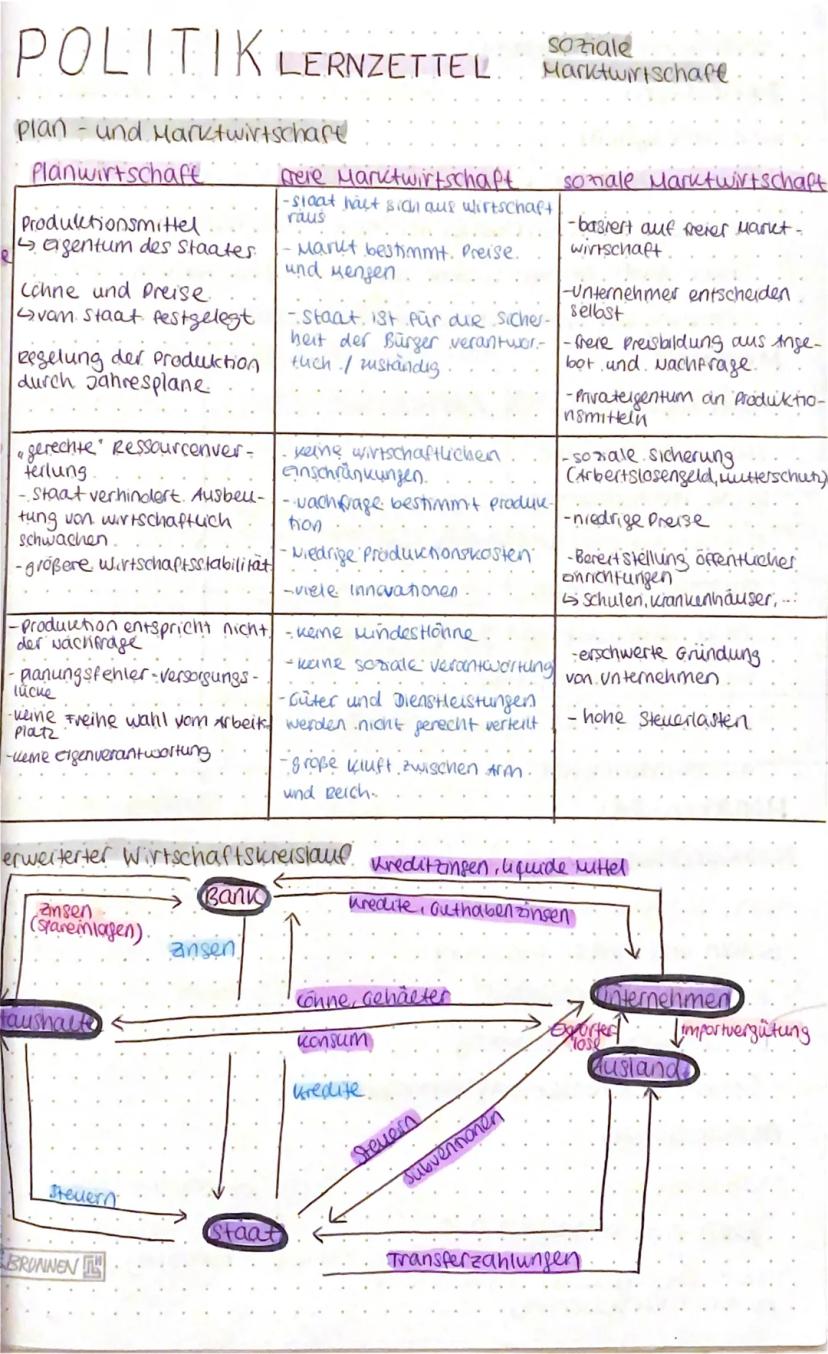 POLITIK LERNZETTEL
soziale
Marktwirtschaft
Plan - und Marktwirtschaft
Planwirtschaft
freie Marktwirtschaft
soziale Marktwirtschaft
Produktionsmittel
↳ Eigentum des Staates
Löhne und Preise
↳ vom Staat festgelegt
Regelung der Produktion
durch Jahrespläne
- Staat hält sich aus Wirtschaft
raus
- Markt bestimmt Preise
und Mengen
- Staat ist für die Sicher-
heit der Bürger verantwor-
tlich / zuständig
- basiert auf freier Markt-
wirtschaft
- Unternehmer entscheiden
selbst
- freie Preisbildung aus Ange-
bot und Nachfrage
- Privateigentum an Produktio-
nsmitteln
"gerechte" Ressourcenver-
teilung
- Staat verhindert Ausbeu-
tung von wirtschaftlich
schwachen
- größere Wirtschaftsstabilität
- keine wirtschaftlichen
einschränkungen
- Nachfrage bestimmt produk-
tion
- Niedrige Produktionskosten
- viele Innovationen
- soziale Sicherung
(Arbeitslosengeld, Mutterschutz)
- niedrige Preise
- Bereitstellung öffentlicher
einrichtungen
↳ Schulen, Krankenhäuser, ...
- Produktion entspricht nicht
der Nachfrage
- planungsfehler - versorgungs-
lücke
- keine Freihe wahl vom Arbeits
platz
- keine eigenverantwortung
- keine Mindestlöhne
- keine soziale verantwortung
- Güter und Dienstleistungen
werden nicht gerecht verteilt
- große kluft zwischen Arm
und Reich.
- erschwerte Gründung
von Unternehmen
- hohe Steuerlasten
erweiterter Wirtschaftskreislauf
Kreditzinsen, liquide Mittel
Bank
Kredite, Guthabenzinsen
Zinsen
(Spareinlagen)
Zinsen
Löhne, Gehälter
Unternehmen
Haushalte
Konsum
Exporter
löse
Importvergütung
Ausland
Kredite
Steuern
Subventionen
Steuern
Staat
Transferzahlungen
BRUNNEN